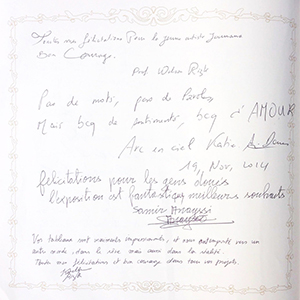 Toutes mes félicitations Pour le jeune artiste
Bon Courage.
Prof
Pas de mots, pas de Paroles,
Mais bcq de sentiments, bcq d'AMOUR
Arc en ciel Katia
19, Nov, 2014
felicitations pour les gens doués
l'exposition est fantastique meilleurs souhaits
Samir
Vos tableaux sont vraiment impressionnants, et nous
un
autre monde dans le rêve mais aussi dans la réalité.
Toutes mes félicitations et bon courage dans tous vos projets.